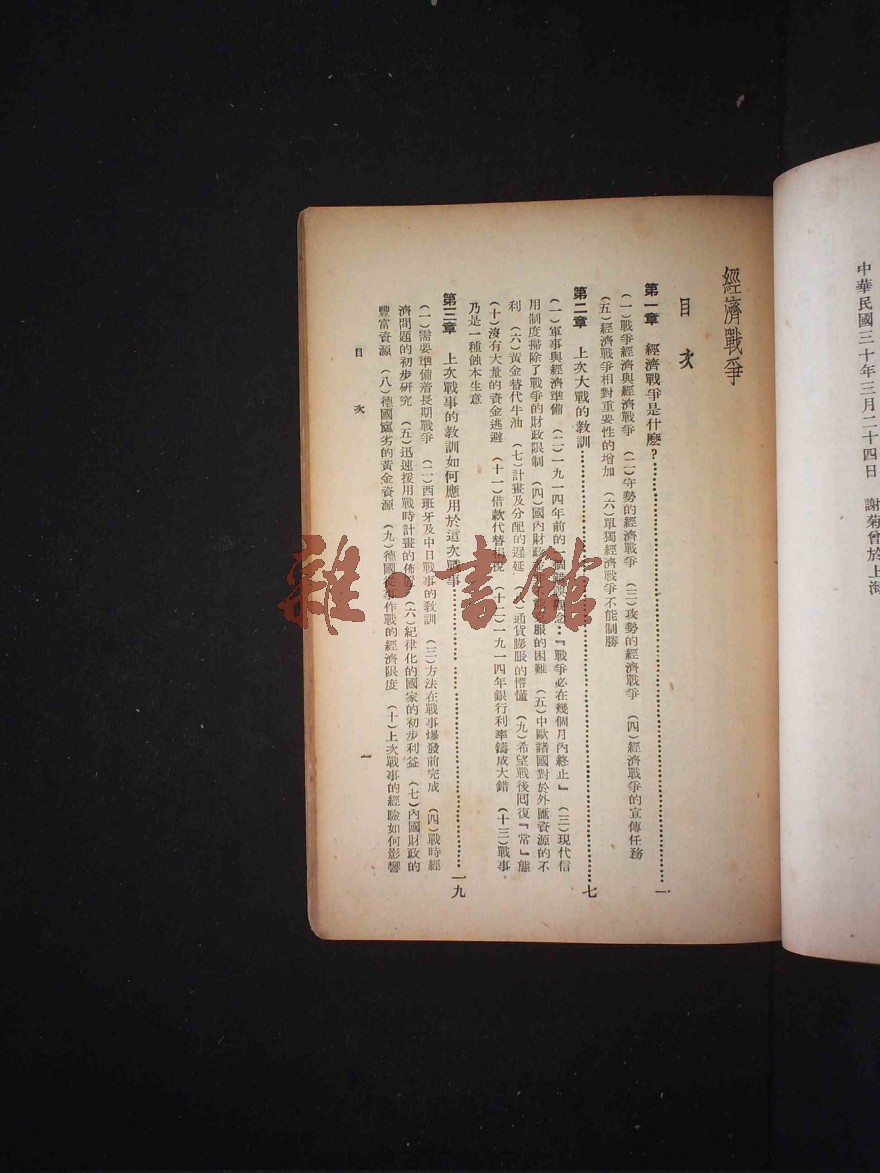 中華民國三十年三月二十四日 謝菊曾於上海
經濟戰爭
目次
第一章 經濟戰爭是什麽?……一
(一)戰爭經濟與經濟戰爭 (二)守勢的經濟戰爭 (三)攻勢的經濟戰爭 (四)經濟戰爭的宣傳任務
(五)經濟戰爭相對重要性的增加 (六)單獨經濟戰爭不能制勝
第二章 上次大戰的教訓……七
(一)軍事與經濟準備 (二)一九一四年前的一個『戰爭必在幾個月內終止』 (三)現代信
用制度掃除了戰爭的財政限制 (四)國內財政的困難 (五)中歐諸國對於外匯資源的不
利 (六)黃金替代牛油 (七)計畫及分配的遲延 (八)通貨膨脹的懵懂 (九)希望戰後囘復『常』態
(十)沒有大量的資金逃避 (十一)借款代替捐稅 (十二)一九一四年銀行利率鑄成大錯 (十三)戰事
乃是一種蝕本生意
第三章 上次戰事的教訓如何應用於這次戰事……一九
(一)需要準備着長期戰爭 (二)西班牙及中日戰事的教訓 (三)方法在戰事爆發前完成 (四)戰時經
濟問題的初步研究 (五)迅速援用戰時計畫的佈置 (六)紀律化的國家的初步利益 (七)內國財政的
豐富資源 (八)德國窳劣的黃金資源 (九)德國從事作戰的經濟限度 (十)上次戰事的經驗如何影響
目次
一
雜·書館